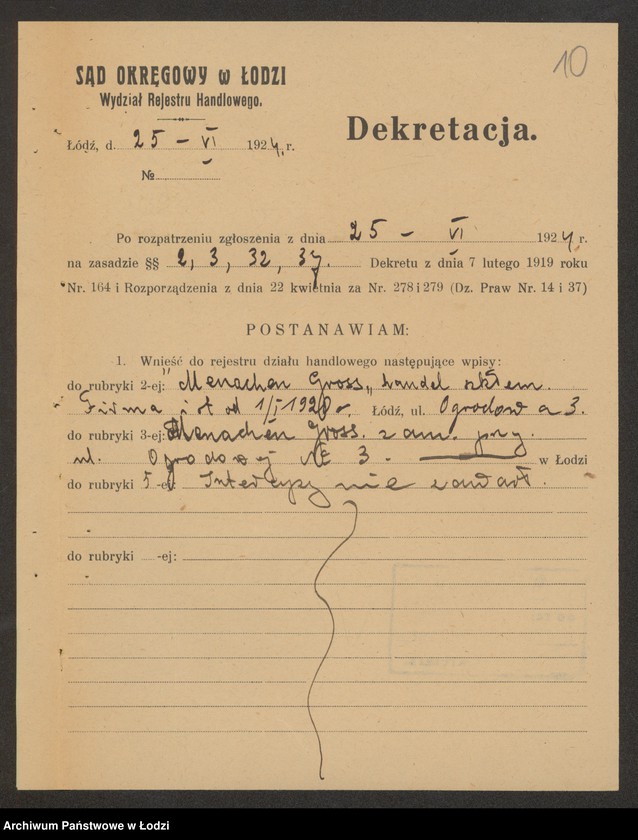 10
SĄD OKRĘGOWY w ŁODZI
Wydział Rejestru Handlowego.
Łódź, d. 25 – VI 1924. r.
№
Dekretacja.
Po rozpatrzeniu zgłoszenia z dnia 25 – VI 1924 r.
na zasadzie §§ 2, 3, 32, 37. Dekretu z dnia 7 lutego 1919 roku
Nr. 164 i Rozporządzenia z dnia 22 kwietnia za Nr. 278 i 279 (Dz. Praw Nr. 14 i 37)
POSTANAWIAM:
1. Wnieść do rejestru działu handlowego następujące wpisy:
do rubryki 2-ej: "Menachen Gross" handel szkłem.
Firma ist od 1/I 1920 r. Łódź, ul. Ogrodowa 3.
do rubryki 3-ej: Menachen Gross. zam. przy.
ul. Ogrodowej № 3. w Łodzi
do rubryki 5-ej: Intercyzy nie zawarł.
do rubryki -ej:
Archiwum Państwowe w Łodzi